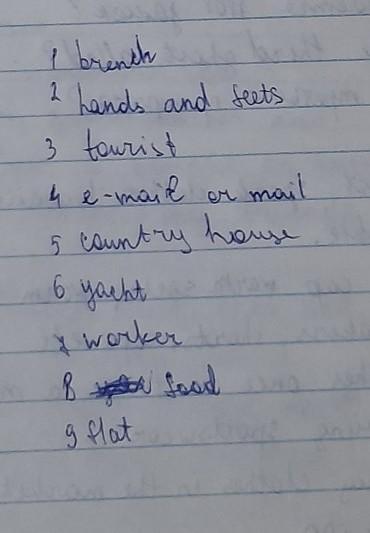 1 brench
2 hands and feets
3 tourist
4 e-mail or mail
5 country house
6 yacht
7 worker
8 food
9 flat